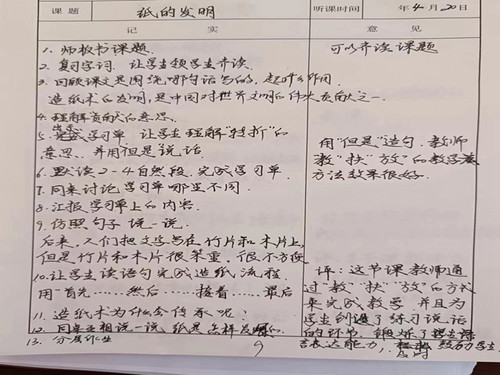 课题 纸的发明 听课时间 年4月20日
记实 意见
1. 师板书课题.
2. 复习字词. 让学生领学生齐读.
3. 回顾课文是围绕哪句话写的, 起什么作用.
造纸术的发明, 是中国对世界文明的伟大贡献之一.
4. 理解贡献的意思.
5. 完成学习单 让学生理解"转折"的
意思. 并用但是说话.
6. 默读2-4自然段. 完成学习单.
7. 同桌讨论学习单哪里不同.
8. 汇报学习单上的内容.
9. 仿照句子说一说.
后来, 人们把文字写在竹片和木片上,
但是竹片和木片很笨重, 很不方便
10. 让学生读语句完成造纸流程.
用"首先……然后……接着……最后
11. 造纸术为什么会传承呢?
12. 同桌互相说一说纸是怎样发明的.
13. 分层作业
可以齐读课题
用"但是"造句. 教师
教"扶""放"的教学
方法效果很好.
评: 这节课教师通
过"教""扶""放"的方式
来完成教学, 并且为
学生创造了练习说话
的环节, 锻炼了语
言表达能力, 鼓励学生
9